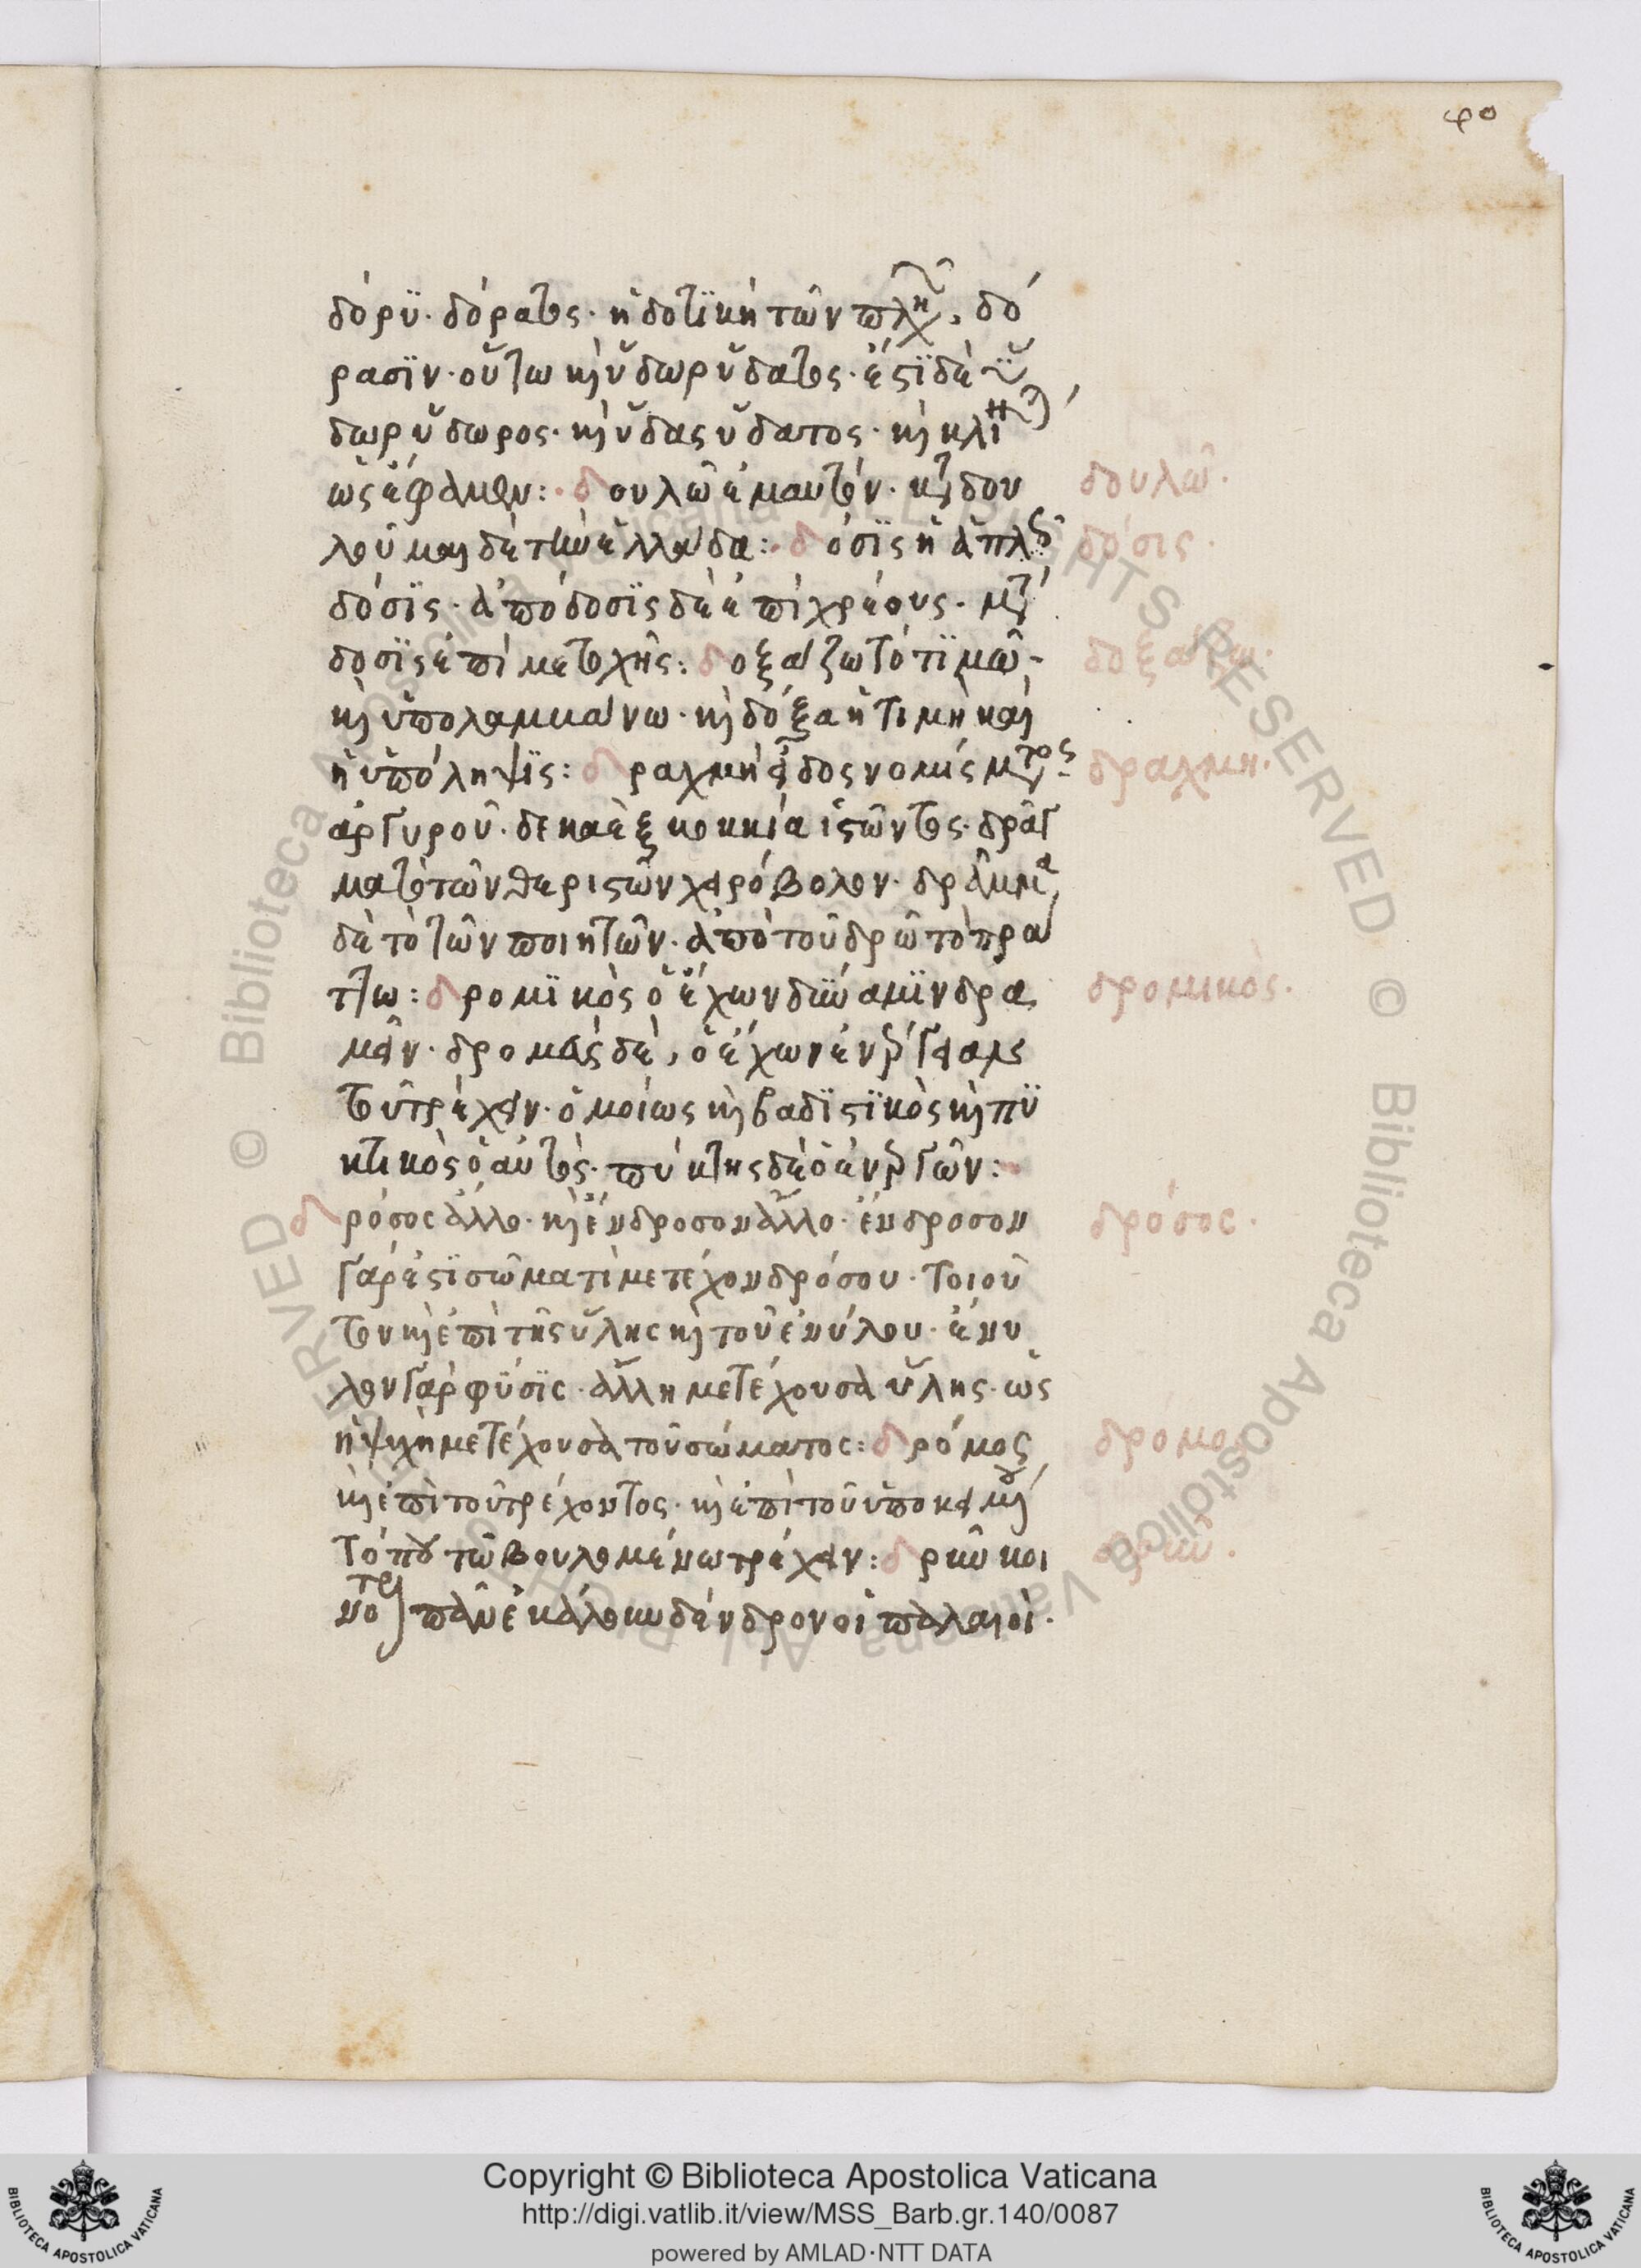 φο
δόρϋ· δόρατος· ἡ δοτϊκὴ τῶν πλη, δό
ρασϊν· οὕτω καὶ ὕδωρ ὕδατος· ἔστϊ δὲ ὕ
δωρ ὕδωρος· καὶ ὕδας ὕδατος· καὶ κλι
ὡς ἔφαμεν: δουλῶ ἐμαυτόν· καὶ δου δουλῶ.
λοῦμαι δὲ τὴν ἑλλάδα: δόσϊς ἡ ἁπλῶς δόσις.
δόσϊς· ἀπόδοσϊς δὲ ἐπὶ χρέους· μετά
δοσϊς ἐπὶ μετοχῆς: δοξάζω τὸ τϊμῶ- δοξάζω.
καὶ ὑπολαμβάνω· καὶ δόξα ἡ τιμὴ καὶ
ἡ ὑπόληψϊς: δραχμὴ εἶδος νομίσματος δραχμη.
ἀργυροῦ· δεκαὲξ κοκκία ἱστῶντος· δράγ
ματο τῶν θεριστῶν χειρόβολον· δρᾶμα
δὲ τὸ τῶν ποιητῶν· ἀπὸ τοῦ δρῶ τὸ πρά
ττω: δρομϊκὸς ὁ ἔχων δύναμϊν δρα δρομικὸς.
μεῖν· δρομὰς δὲ, ὁ ἔχων ἐνέργειαν
τοῦ τρέχειν· ὁμοίως καὶ βαδϊστϊκὸς καὶ πϋ
κτικὸς ὁ αὐτὸς· πύκτης δὲ ὁ ἐνεργῶν:
δρόσος ἄλλο· καὶ ἔνδροσον ἄλλο· ἔνδροσον δρόσος.
γάρ ἐστϊ σῶμα τὶ μετέχον δρόσου· τοιοῦ
τον καὶ ἐπὶ τῆς ὕλης καὶ τοῦ ἐνύλου· ἔνυ
λον γὰρ φύσϊς· ἄλλη μετέχουσα ὕλης· ὡς
ἡ ψυχὴ μετέχουσα τοῦ σώματος: δρόμος δρόμος
καὶ ἐπὶ τοῦ τρέχοντος· καὶ ἐπὶ τοῦ ὑποκειμένου
τόπου τῶ βουλομένω τρέχειν: δρῦν κοι δρῦν.
νο πᾶν ἐκάλουν δένδρον οἱ παλαιοὶ.
Copyright © Biblioteca Apostolica Vaticana
http://digi.vatlib.it/view/MSS_Barb.gr.140/0087
powered by AMLAD·NTT DATA
BIBLIOTECA APOSTOLICA VATICANA
BIBLIOTECA APOSTOLICA VATICANA